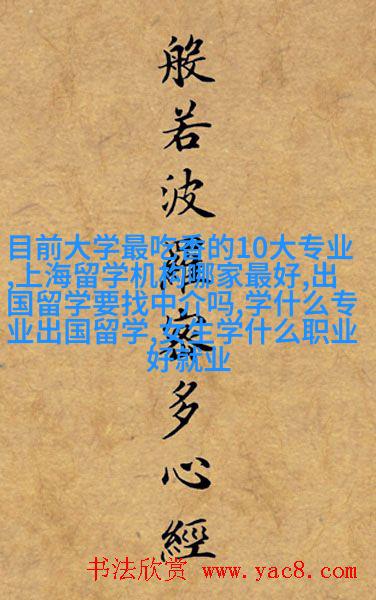 般若波羅蜜多心經
目前大学最吃香的10大专业
,上海留学机构哪家最好,出
国留学要找中介吗,学什么专
业出国留学,女生学什么职业
好就业
书法欣赏 www.yac8.com